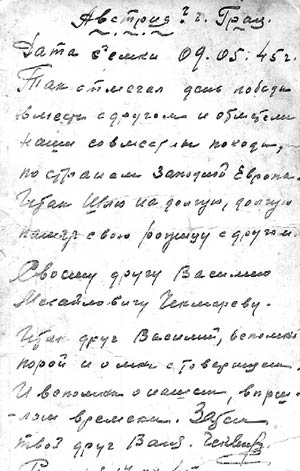 Австрия? г. Грац.
Дата с'емки 09.05:45г.
Так отмечал день победы
вместе с другом и обмыли
наши совместные походы,
по странам Западной Европы.
Итак Шлю на долгую, долгую
память свою рожицу с другом.
Своему другу Василию
Михайловичу Чекмареву.
Итак друг Василий, вспомни
порой и о мне с товарищем.
И вспомни о нашем, в прош-
-лом времени.
твой друг Ваня.